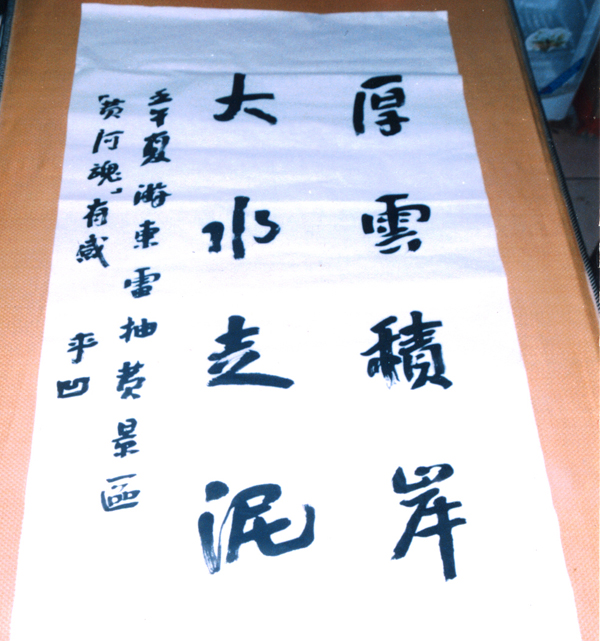 厚雲積岸
大水走泥
壬午夏游東雷抽黄景區
“黄河魂”有感
平凹